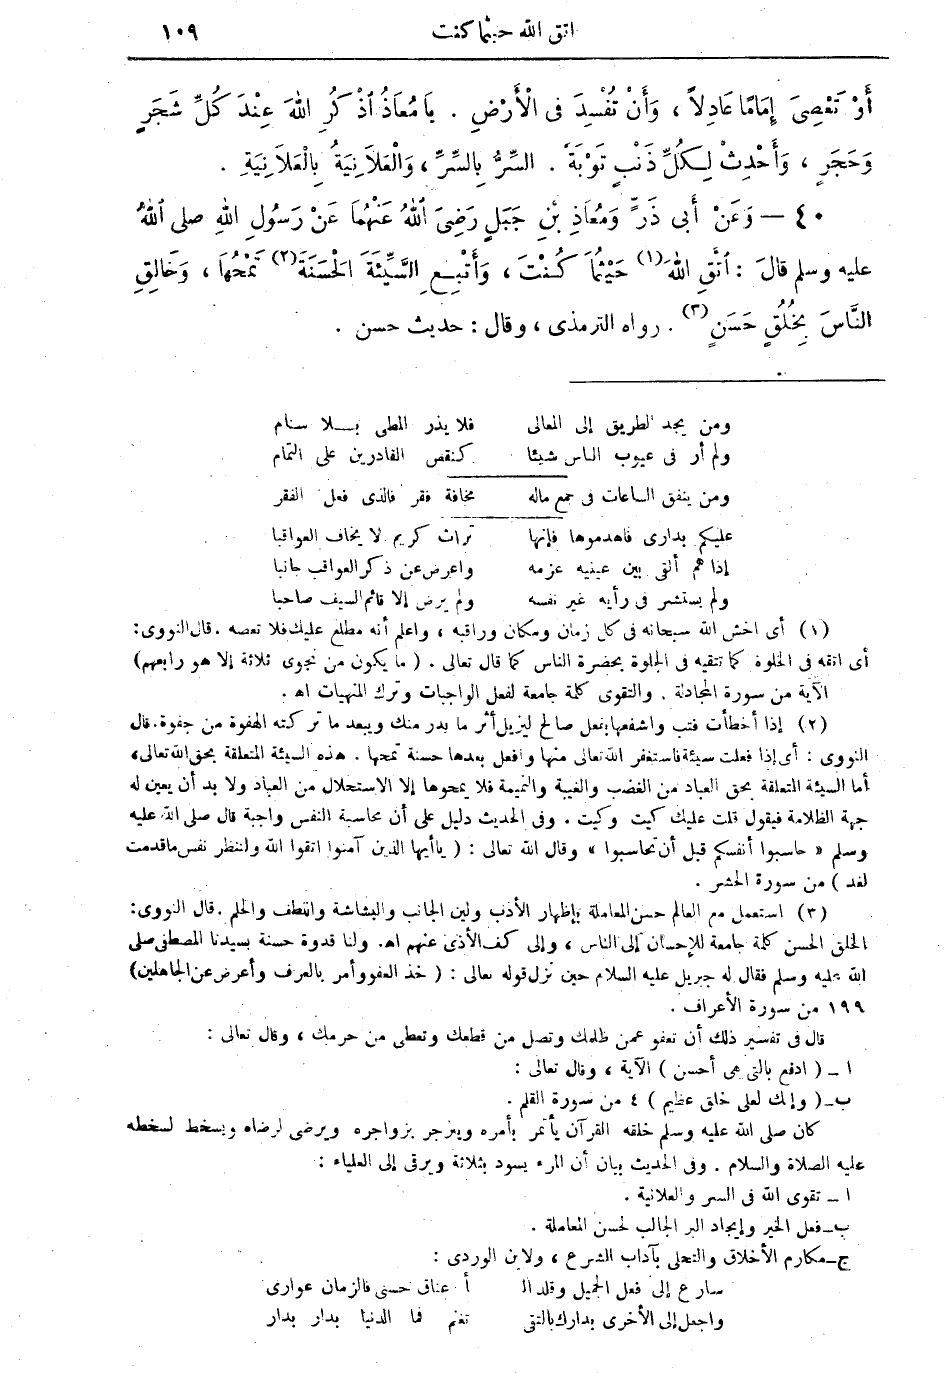 اتق الله حيثما كنت
١٠٩
أَوْ تَعْصِىَ إِمَامًا عَادِلاً ، وَأَنْ تُفْسِدَ فى الْأَرْضِ . يَا مُعَاذُ اُذْكُرِ اللهَ عِنْدَ كُلِّ شَجَرٍ
وَحَجَرٍ ، وَأَحْدِثْ لِكُلِّ ذَنْبٍ تَوْبَةً . السِّرُّ بِالسِّرِّ ، وَالْعَلاَنِيَةُ بِالْعَلاَنِيَةِ .
٤٠ — وَعَنْ أَبى ذَرٍّ وَمُعَاذِ بْنِ جَبَلٍ رَضِىَ اللهُ عَنْهُمَا عَنْ رَسُولِ اللهِ صلى اللهُ
عليه وسلم قالَ : اتَّقِ اللهَ (١) حَيْثُمَا كُنْتَ ، وَأَتْبِعِ السَّيِّئَةَ الْحَسَنَةَ (٢) تَمْحُهَا ، وَخَالِقِ
النَّاسَ بِخُلُقٍ حَسَنٍ (٣) . رواه الترمذى ، وقال : حديث حسن .
ومن يجد الطريق إلى المعالى فلا يذر المطى بــلا سنام
ولم أر فى عيوب الناس شيئا كنقص القادرين على التمام
ومن ينفق الساعات فى جمع ماله مخافة فقر فالذى فعل الفقر
عليكم بدارى فاهدموها فإنها تراث كريم لا يخاف العواقبا
إذا هم ألقى بين عينيه عزمه وأعرض عن ذكر العواقب جانبا
ولم يستشر فى رأيه غير نفسه ولم يرض إلا قائم السيف صاحبا
(١) أى اخش الله سبحانه فى كل زمان ومكان وراقبه ، واعلم أنه مطلع عليك فلا تعصه . قال النووى :
أى اتقه فى الخلوة كما تتقيه فى الجلوة بحضرة الناس كما قال تعالى . ( ما يكون من نجوى ثلاثة إلا هو رابعهم )
الآية من سورة المجادلة . والتقوى كلمة جامعة لفعل الواجبات وترك المنهيات اه .
(٢) إذا أخطأت فتب واشفعها بفعل صالح ليزيل أثر ما بدر منك ويبعد ما تركته الهفوة من جفوة . قال
النووى : أى إذا فعلت سيئة فاستغفر الله تعالى منها وافعل بعدها حسنة تمحها . هذه السيئة المتعلقة بحق الله تعالى ،
أما السيئة المتعلقة بحق العباد من الغضب والغيبة والنميمة فلا يمحوها إلا الاستحلال من العباد ولا بد أن يعين له
جهة الظلامة فيقول قلت عليك كيت وكيت . وفى الحديث دليل على أن محاسبة النفس واجبة قال صلى الله عليه
وسلم « حاسبوا أنفسكم قبل أن تحاسبوا » وقال الله تعالى : ( ياأيها الذين آمنوا اتقوا الله ولتنظر نفس ماقدمت
لغد ) من سورة الحشر .
(٣) استعمل مع العالم حسن المعاملة بإظهار الأدب ولين الجانب والبشاشة والتلطف والحلم . قال النووى :
الخلق الحسن كلمة جامعة للإحسان إلى الناس ، وإلى كف الأذى عنهم اه . ولنا قدوة حسنة بسيدنا المصطفى صلى
الله عليه وسلم فقال له جبريل عليه السلام حين نزل قوله تعالى : ( خذ العفو وأمر بالعرف وأعرض عن الجاهلين )
١٩٩ من سورة الأعراف .
قال فى تفسير ذلك أن تعفو عمن ظلمك وتصل من قطعك وتعطى من حرمك ، وقال تعالى :
ا ــ ( ادفع بالتى هى أحسن ) الآية ، وقال تعالى :
ب ــ ( وإنك لعلى خلق عظيم ) ٤ من سورة القلم .
كان صلى الله عليه وسلم خلقه القرآن يأتمر بأمره وينزجر بزواجره ويرضى لرضاه ويسخط لسخطه
عليه الصلاة والسلام . وفى الحديث بيان أن المرء يسود بثلاثة ويرقى إلى العلياء :
ا ــ تقوى الله فى السر والعلانية .
ب ــ فعل الخير وإيجاد البر الجالب لحسن المعاملة .
ج ــ مكارم الأخلاق والتحلى بآداب الشرع ، ولابن الوردى :
سارع إلى فعل الجميل وقلد الـ أعناق حسنى فالزمان عوارى
واجعل إلى الأخرى بدارك بالتقى تغنم فما الدنيا بدار بدار